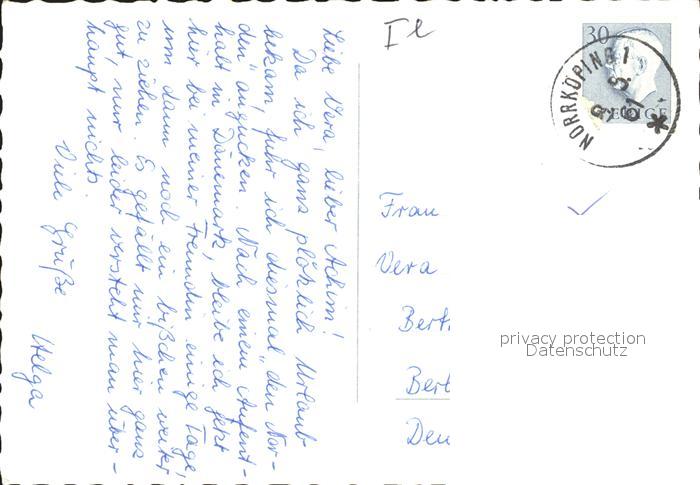 Liebe Vera, lieber Achim!
Da ich ganz plötzlich Urlaub
bekam, fuhr ich diesmal „den Nor-
den“ angucken. Nach einem Aufent-
halt in Dänemark, bleibe ich jetzt
hier bei meiner Freundin einige Tage,
um dann noch ein bißchen weiter
zu ziehen. Es gefällt mir hier ganz
gut, nur leider versteht man über-
haupt nichts.
Viele Grüße
Helga
I e
30
SVERIGE
NORRKÖPING 1
Frau
Vera
privacy protection
Datenschutz